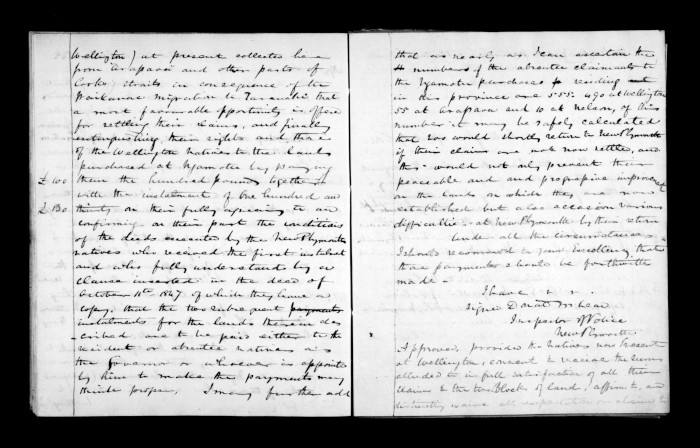 Wellington) at present collected here
from Arapaoa and other parts of
Cooks straits in consequence of the
migration to Taranaki that
a more favourable opportunity is offered
for settling their claims, and finally
extinguishing their rights and those
of the Wellington Natives to the lands
purchased at by paying
£100 them the hundred pounds together
with the instalment of One hundred and
£130 thirty on their fully agreeing to and
confirming on their part the conditions
of the deeds executed by the New Plymouth
natives who received the first instalment
and who fully understand by a
clause inserted in the deed of
October 11th 1847 of which they have a
copy, that the two subsequent payments
instalments for the lands therein des
cribed are to be paid either to the
resident or absentee natives as
the Governor or whoever is appointed
by him to make the payments may
think proper. I may further add
that as nearly as I can ascertain the
numbers of the absentee claimants to
the purchases residing
in this province are 555. 490 at Wellington
55 at Arapaoa and 10 at Nelson, of this
number it may be safely calculated
that 200 would shortly return to New Plymouth
if their claims are not now settled, and
this would not only prevent their
peaceable and and progressive improvement
on the lands on which they are now
established but also occasion various
difficulties at New Plymouth by their return
Under all the circumstances
I should recommend to your Excellency that
those payments should be forthwith
made -
I have
Signed Donald McLean
Inspector of Police
New Plymouth
Approved, provided the Natives now present
at Wellington, consent to receive the sums
alluded to in full satisfaction of all their
claims to the two Blocks of land, and
distinctly waive all expectation or claims to